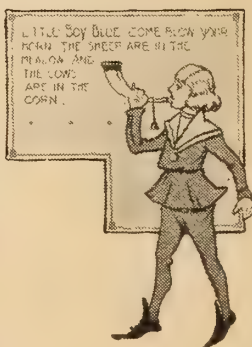 LITTLE BOY BLUE COME BLOW YOUR
HORN THE SHEEP ARE IN THE
MEADOW AND
THE COWS
ARE IN THE
CORN.